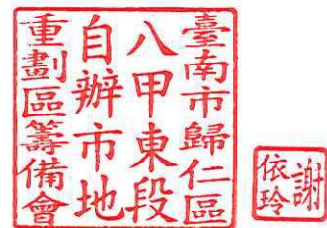 臺南市歸仁區
八甲東段
自辦市地
重劃區籌備會
謝
依玲